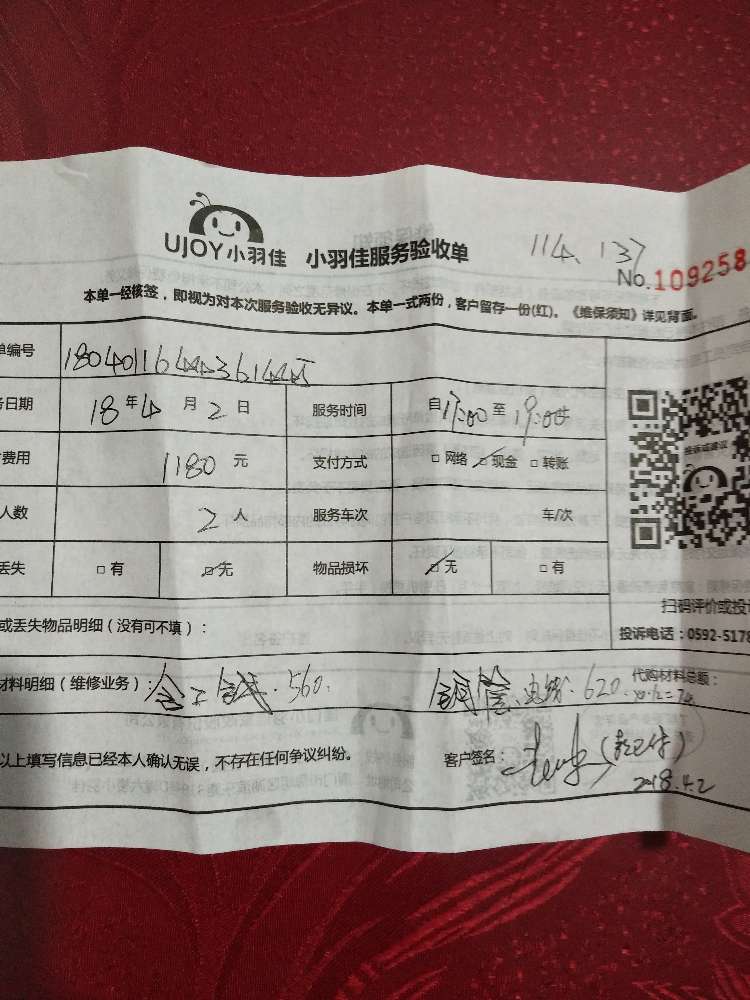 UJOY小羽佳 小羽佳服务验收单
114、137
No.109258
本单一经核签，即视为对本次服务验收无异议。本单一式两份，客户留存一份(红)。《维保须知》详见背面。
单编号 18040116444361445
务日期 18年4月2日 服务时间 自17:00至19:00止
费用 1180元 支付方式 □网络 □现金 □转账
人数 2人 服务车次 车/次
丢失 □有 □无 物品损坏 □无 □有
投诉或建议
扫码评价或投
或丢失物品明细（没有可不填）：
投诉电话：0592-5178
材料明细（维修业务）： 560. 620. 代购材料总额：
以上填写信息已经本人确认无误，不存在任何争议纠纷。 客户签名： (款已付)
2018.4.2